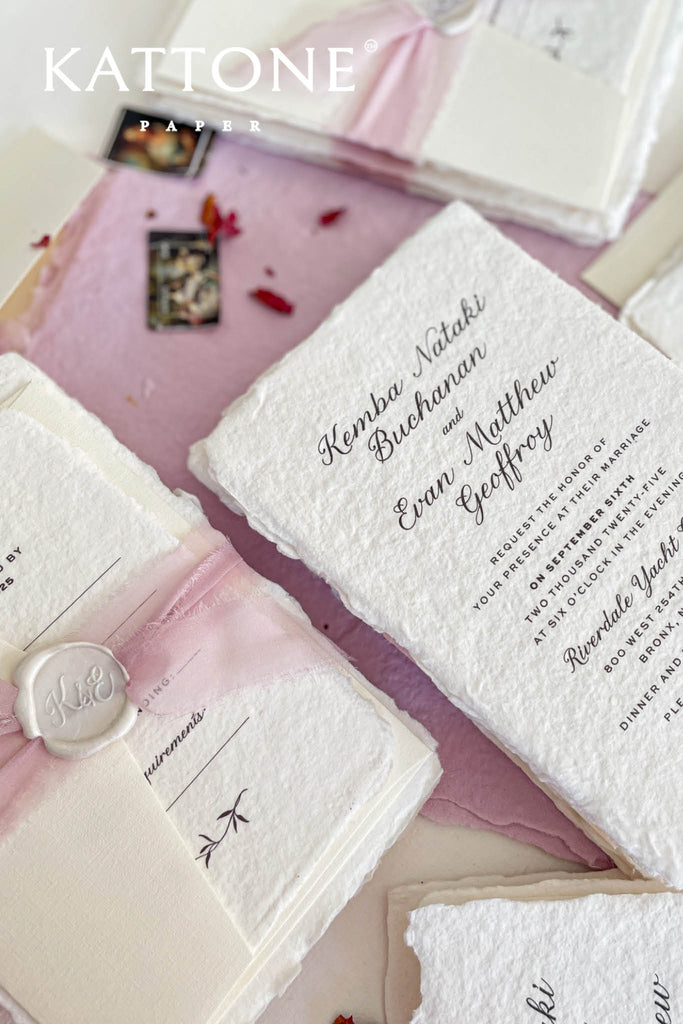 KATTONE
PAPER
Kemba Nataki
Buchanan
and
Evan Matthew
Geoffroy
REQUEST THE HONOR OF
YOUR PRESENCE AT THEIR MARRIAGE
ON SEPTEMBER SIXTH
TWO THOUSAND TWENTY-FIVE
AT SIX O'CLOCK IN THE EVENING
Riverdale Yacht
800 WEST 254TH
BRONX, N
DINNER AND
PLE
D BY
25
K&E
NDING:
quirements: